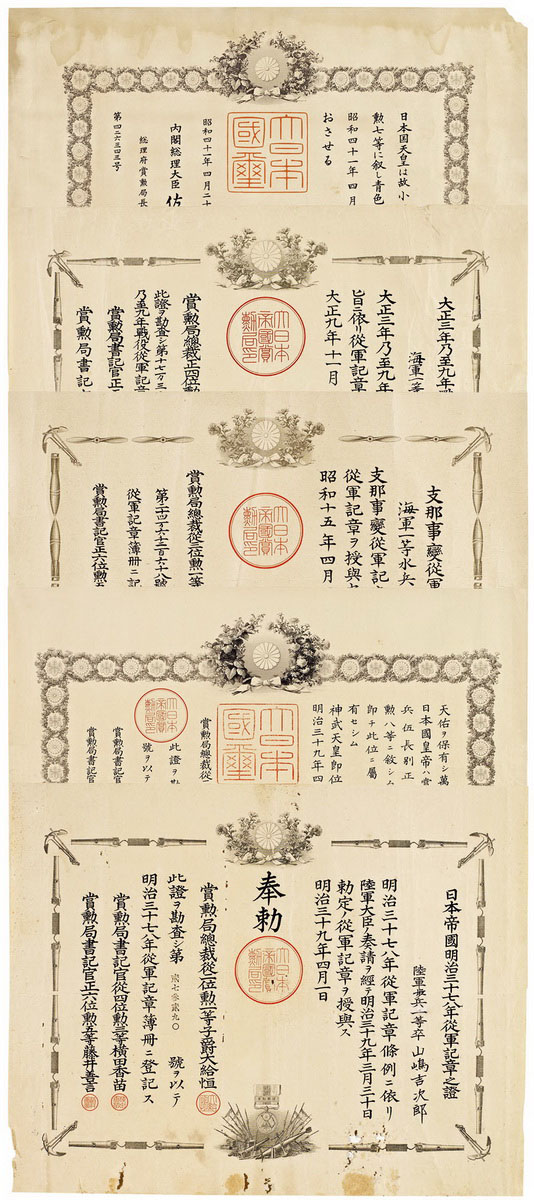 日本国天皇は故小
勲七等に叙し青色
昭和四十一年四月
おさせる
大日本國璽
昭和四十一年四月二十
内閣総理大臣 佐
総理府賞勲局長
第四二六三四三号
大正三年乃至九年
海軍一等
大正三年乃至九年
旨ニ依リ從軍記章
大正九年十一月
大日本帝國賞勲局印
賞勲局總裁正四位勲
此證ヲ勘査シ第十七万三
乃至九年戰役從軍記章
賞勲局書記官正
賞勲局書記
支那事變從軍
海軍一等水兵
支那事變從軍記
從軍記章ヲ授與
昭和十五年四月
大日本帝國賞勲局印
賞勲局總裁從二位勲一等
第二十四万六千二百六十八號
從軍記章簿册ニ記
賞勲局書記官正六位勲五
天佑ヲ保有シ萬
日本國皇帝ハ
兵伍長別正
勲八等ニ敘シ
即チ此位ニ屬
有セシム
神武天皇即位
明治三十九年四
大日本國璽
賞勲局總裁從
大日本帝國賞勲局印
此證ヲ
號ヲ以テ
賞勲局書記官
賞勲局書記官
日本帝國明治三十七八年從軍記章之證
陸軍 兵一等卒 山嶋吉次郎
明治三十七八年從軍記章條例ニ依リ
陸軍大臣ノ奏請ヲ經テ明治三十九年三月三十日
勅定ノ從軍記章ヲ授與ス
明治三十九年四月一日
奉勅
大日本帝國賞勲局印
賞勲局總裁從二位勲一等子爵大給恒
此證ヲ勘査シ第 號ヲ以テ
明治三十七八年從軍記章簿册ニ登記ス
賞勲局書記官從四位勲三等横田香苗
賞勲局書記官正六位勲五等藤井善言